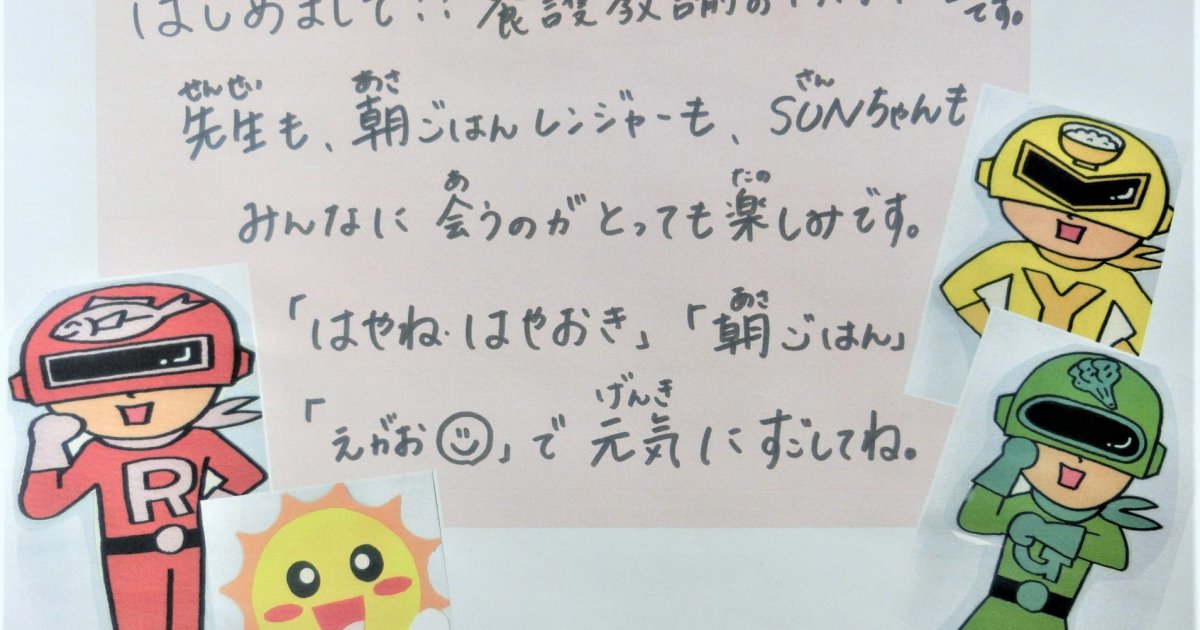 はじめまして!! 養護教諭の です。
せんせい あさ さん
先生も、朝ごはんレンジャーも、SUNちゃんも
あ たの
みんなに会うのがとっても楽しみです。
あさ
「はやね・はやおき」「朝ごはん」
げんき
「えがお☺」で元気にすごしてね。
R
Y
G